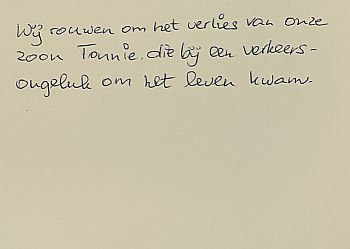 Wij rouwen om het verlies van onze
zoon Tonnie, die bij een verkeers-
ongeluk om het leven kwam.